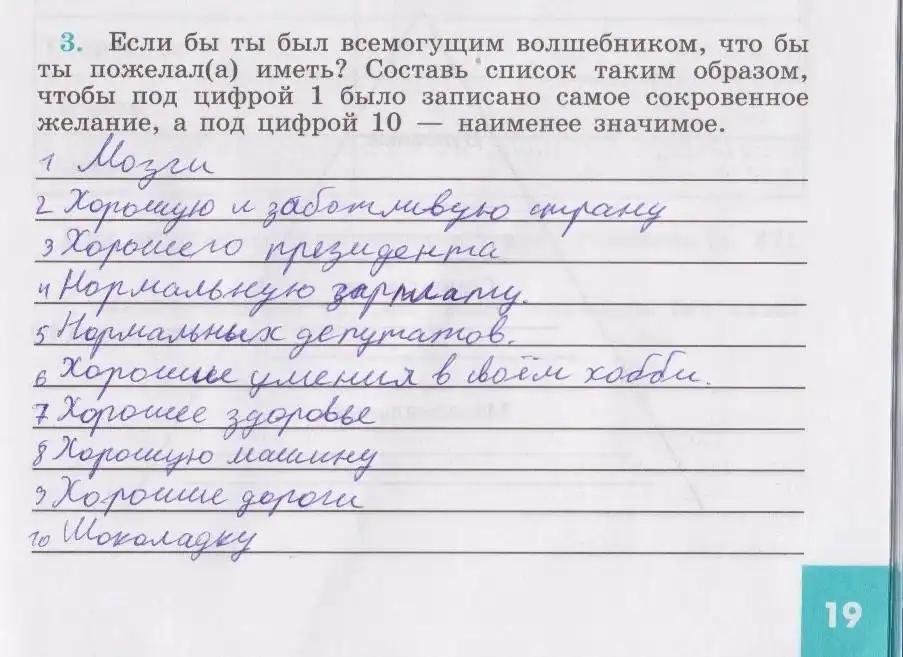 3. Если бы ты был всемогущим волшебником, что бы
ты пожелал(а) иметь? Составь список таким образом,
чтобы под цифрой 1 было записано самое сокровенное
желание, а под цифрой 10 — наименее значимое.
1 Мозги
2 Хорошую и заботливую страну
3 Хорошего президента
4 Нормальную зарплату.
5 Нормальных депутатов.
6 Хорошие умения в своём хобби.
7 Хорошее здоровье
8 Хорошую машину
9 Хорошие дороги
10 Шоколадку
19